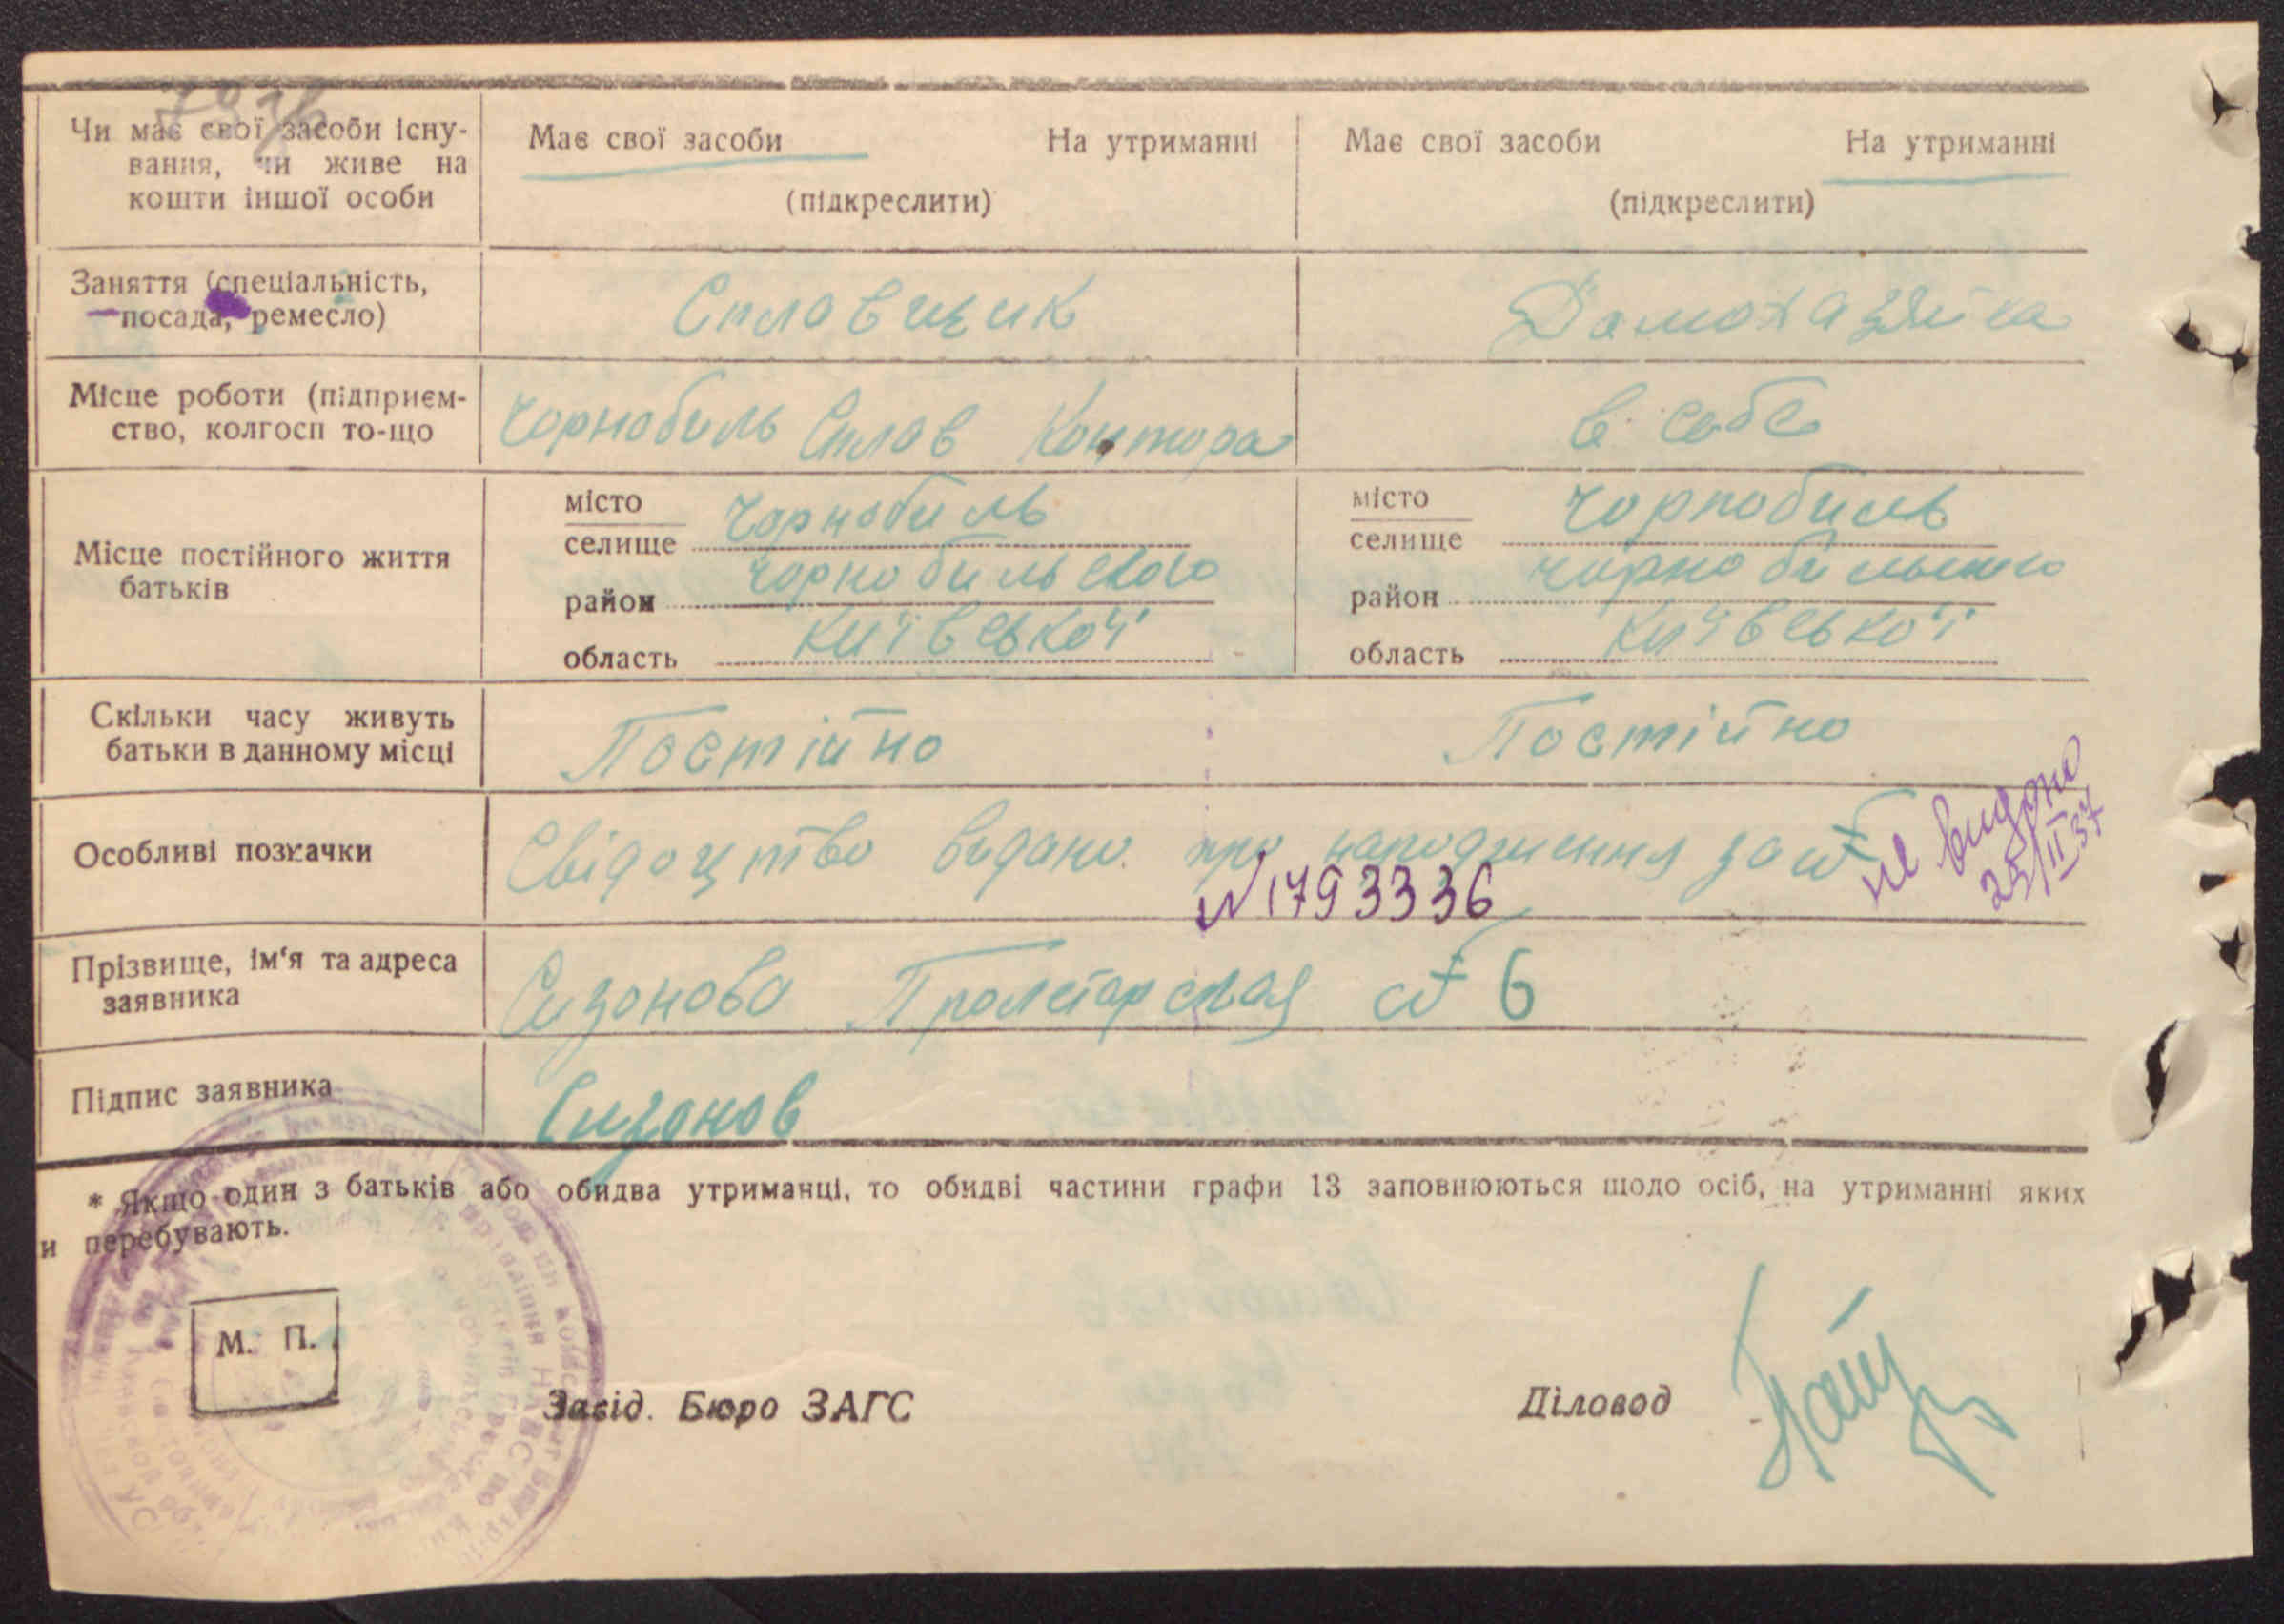 Чи має свої засоби існу-
вання, чи живе на
кошти іншої особи
Має свої засоби На утриманні
(підкреслити)
Має свої засоби На утриманні
(підкреслити)
Заняття (спеціальність,
посада, ремесло)
Сплавщик
Домохазяйка
Місце роботи (підприєм-
ство, колгосп то-що
Чорнобиль Сплав Контора
в себе
Місце постійного життя
батьків
місто
селище Чорнобиль
район Чорнобильского
область Київської
місто
селище Чорнобиль
район
область Київської
Скільки часу живуть
батьки в данному місці
Постійно
Постійно
Особливі позначки
Свідоцтво видано про народження за №
N 1793336
не видано
25/II 37
Прізвище, ім'я та адреса
заявника
Сизонова Пролетарская № 6
Підпис заявника
Сизонов
* Якщо один з батьків або обидва утриманці, то обидві частини графи 13 заповнюються щодо осіб, на утриманні яких
и перебувають.
М. П.
Завід. Бюро ЗАГС
Діловод